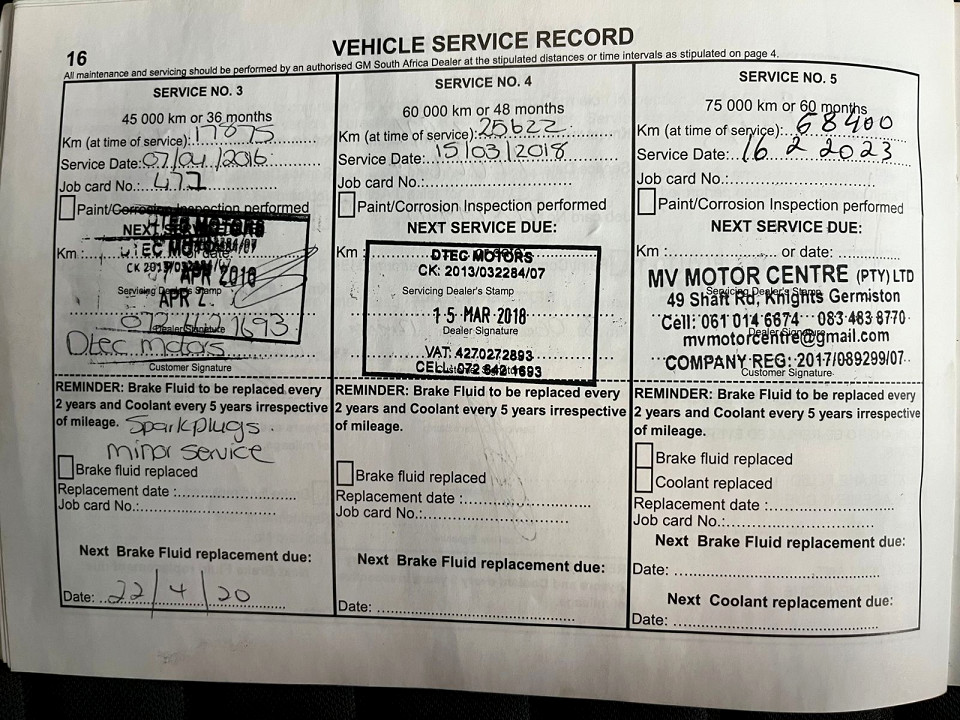 16
VEHICLE SERVICE RECORD
All maintenance and servicing should be performed by an authorised GM South Africa Dealer at the stipulated distances or time intervals as stipulated on page 4.
SERVICE NO. 3
45 000 km or 36 months
Km (at time of service): 17875
Service Date: 07/04/2016
Job card No.: 477
Paint/Corrosion Inspection performed
NEXT SERVICE DUE:
Km :
DTEC MOTORS
APR 2016
APR 2
Servicing Dealer's Stamp
Dealer Signature
Dtec motors
Customer Signature
REMINDER: Brake Fluid to be replaced every
2 years and Coolant every 5 years irrespective
of mileage. Sparkplugs.
minor service
Brake fluid replaced
Replacement date :
Job card No.:
Next Brake Fluid replacement due:
Date: 22/4/20
SERVICE NO. 4
60 000 km or 48 months
Km (at time of service): 25622
Service Date: 15/03/2018
Job card No.:
Paint/Corrosion Inspection performed
NEXT SERVICE DUE:
Km :
DTEC MOTORS
CK: 2013/032284/07
Servicing Dealer's Stamp
15 MAR 2018
Dealer Signature
VAT: 4270272893
CELL: 072 642 1693
REMINDER: Brake Fluid to be replaced every
2 years and Coolant every 5 years irrespective
of mileage.
Brake fluid replaced
Replacement date :
Job card No.:
Next Brake Fluid replacement due:
Date:
SERVICE NO. 5
75 000 km or 60 months
Km (at time of service): 68400
Service Date: 16 2 2023
Job card No.:
Paint/Corrosion Inspection performed
NEXT SERVICE DUE:
Km : or date:
MV MOTOR CENTRE (PTY) LTD
Servicing Dealer's Stamp
49 Shaft Rd, Knights Germiston
Cell: 061 014 6674 083 483 8770
Dealer Signature
mvmotorcentre@gmail.com
COMPANY REG: 2017/089299/07
Customer Signature
REMINDER: Brake Fluid to be replaced every
2 years and Coolant every 5 years irrespective
of mileage.
Brake fluid replaced
Coolant replaced
Replacement date:
Job card No.:
Next Brake Fluid replacement due:
Date:
Next Coolant replacement due:
Date: